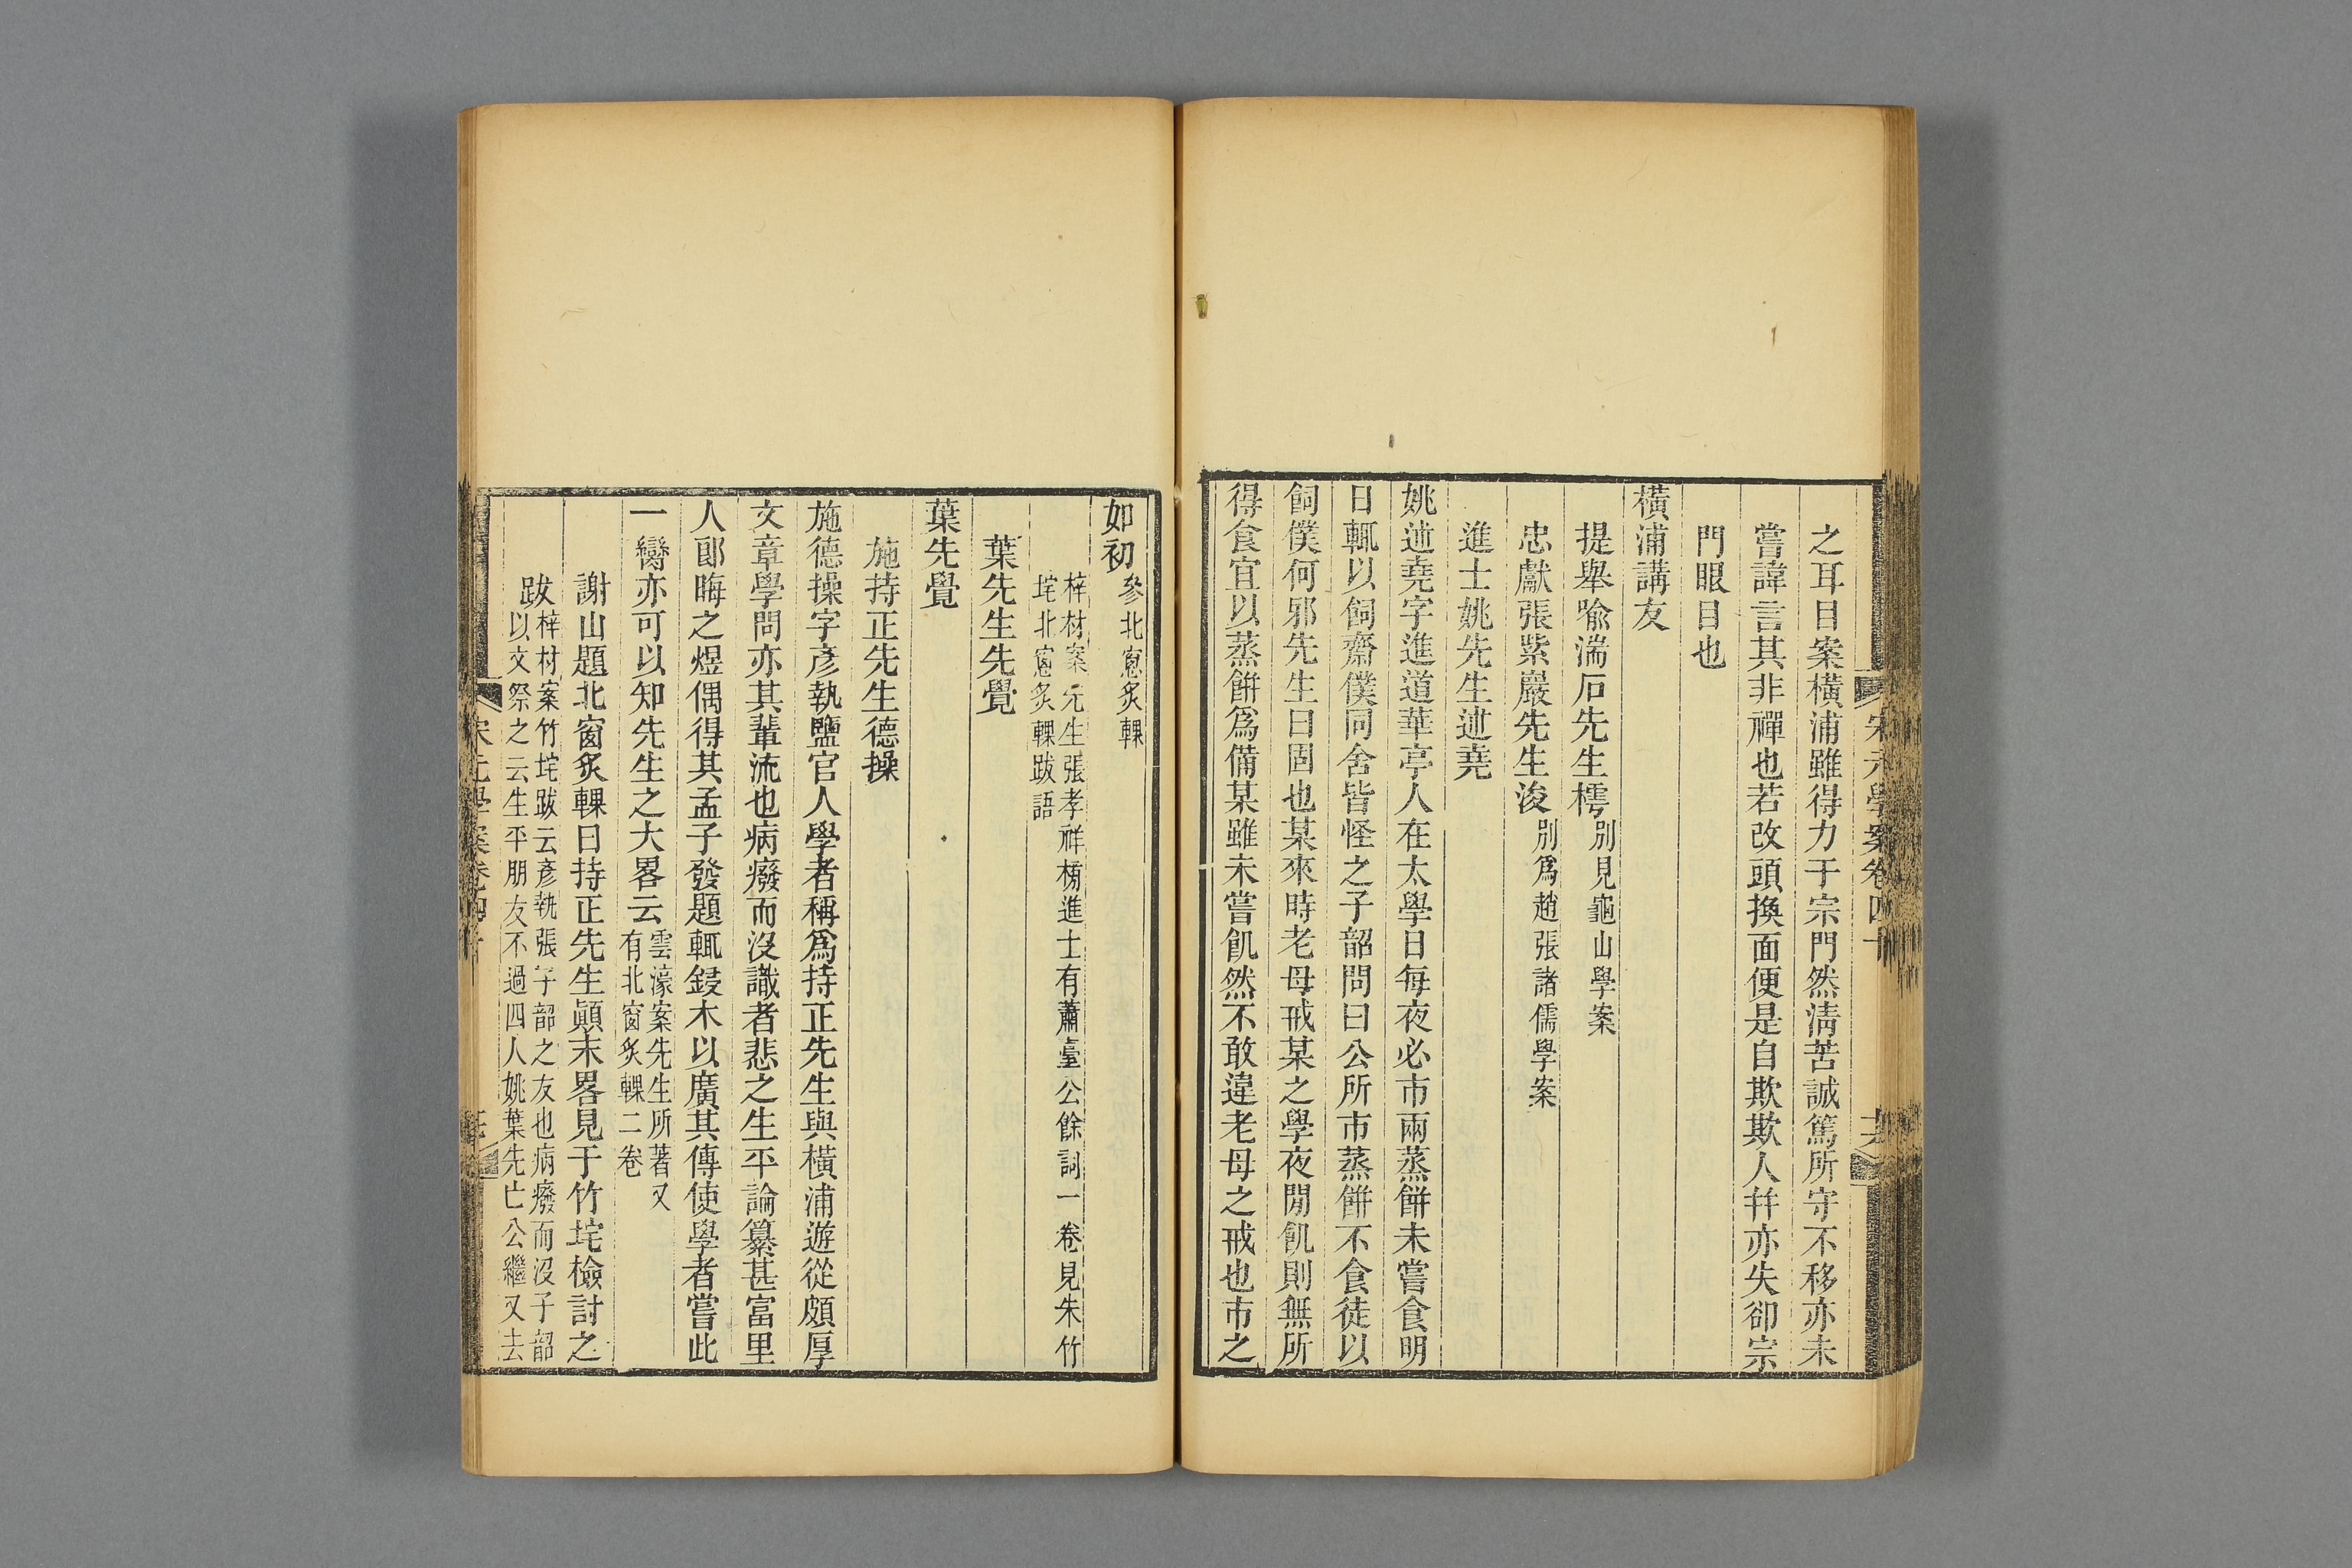 之耳目案橫浦雖得力于宗門然淸苦誠篤所守不移亦未
嘗諱言其非禪也若改頭換面便是自欺欺人幷亦失卻宗
門眼目也
橫浦講友
提舉喻湍石先生樗別見龜山學案
忠獻張紫巖先生浚別爲趙張諸儒學案
進士姚先生述堯
姚述堯字進道華亭人在太學日每夜必市兩蒸餅未嘗食明
日輒以飼齋僕同舍皆怪之子韶問曰公所市蒸餅不食徒以
飼僕何邪先生曰固也某來時老母戒某之學夜閒飢則無所
得食宜以蒸餅爲備某雖未嘗飢然不敢違老母之戒也市之
如初參北窻炙輠
梓材案先生張孝祥榜進士有蕭臺公餘詞一卷見朱竹
垞北窻炙輠跋語
葉先生先覺
葉先覺
施持正先生德操
施德操字彥執鹽官人學者稱爲持正先生與橫浦遊從頗厚
文章學問亦其輩流也病癈而沒識者悲之生平論纂甚富里
人郞晦之煜偶得其孟子發題輒鋟木以廣其傳使學者嘗此
一臠亦可以知先生之大畧云
雲濠案先生所著又
有北窗炙輠二卷
謝山題北窗炙輠曰持正先生顚末畧見于竹垞檢討之
跋
梓材案竹垞跋云彥執張子韶之友也病癈而沒子韶
以文祭之云生平朋友不過四人姚葉先亡公繼又去